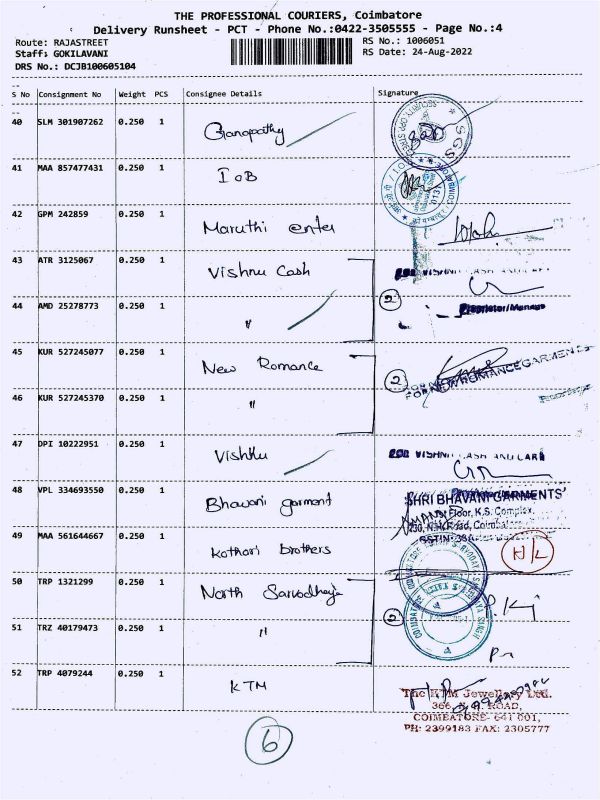 THE PROFESSIONAL COURIERS, Coimbatore
Delivery Runsheet - PCT - Phone No.:0422-3505555 - Page No.:4
Route: RAJASTREET
Staff: GOKILAVANI
DRS No.: DCJB100605104
RS No.: 1006051
RS Date: 24-Aug-2022
S No Consignment No Weight PCS Consignee Details Signature
40 SLM 301907262 0.250 1 Ganapathy
SECURITY SGS
41 MAA 857477431 0.250 1 IOB
42 GPM 242859 0.250 1 Maruthi enter
43 ATR 3125067 0.250 1 Vishnu Cash
2
44 AMD 25278773 0.250 1 "
Proprietor/Manager
45 KUR 527245077 0.250 1 New Romance
2 FOR NEW ROMANCE GARMENTS
46 KUR 527245370 0.250 1 "
47 DPI 10222951 0.250 1 Vishnu
FOR VISHNU CASH AND CARR
48 VPL 334693550 0.250 1 Bhavani garment
SHRI BHAVANI GARMENTS'
Floor, K.S. Complex,
49 MAA 561644667 0.250 1 Kothari brothers
H/L
50 TRP 1321299 0.250 1 North Sarvodhaya
2
51 TRZ 40179473 0.250 1 "
52 TRP 4079244 0.250 1 KTM
The KTM Jewellery Ltd.
366, N.H. ROAD,
COIMBATORE- 641 001,
PH: 2399183 FAX: 2305777
6